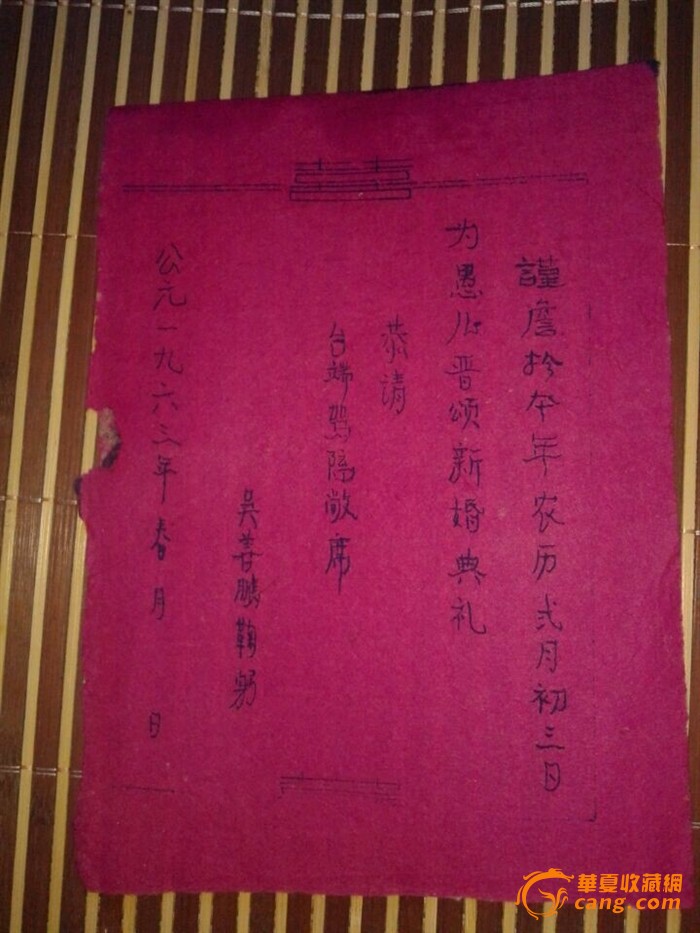 謹詹於本年农历弍月初三日
为愚儿晋颂新婚典礼
恭请
台端驾临敞席
吴善鹏鞠躬
公元一九六三年春月 日
華夏收藏網
cang.com